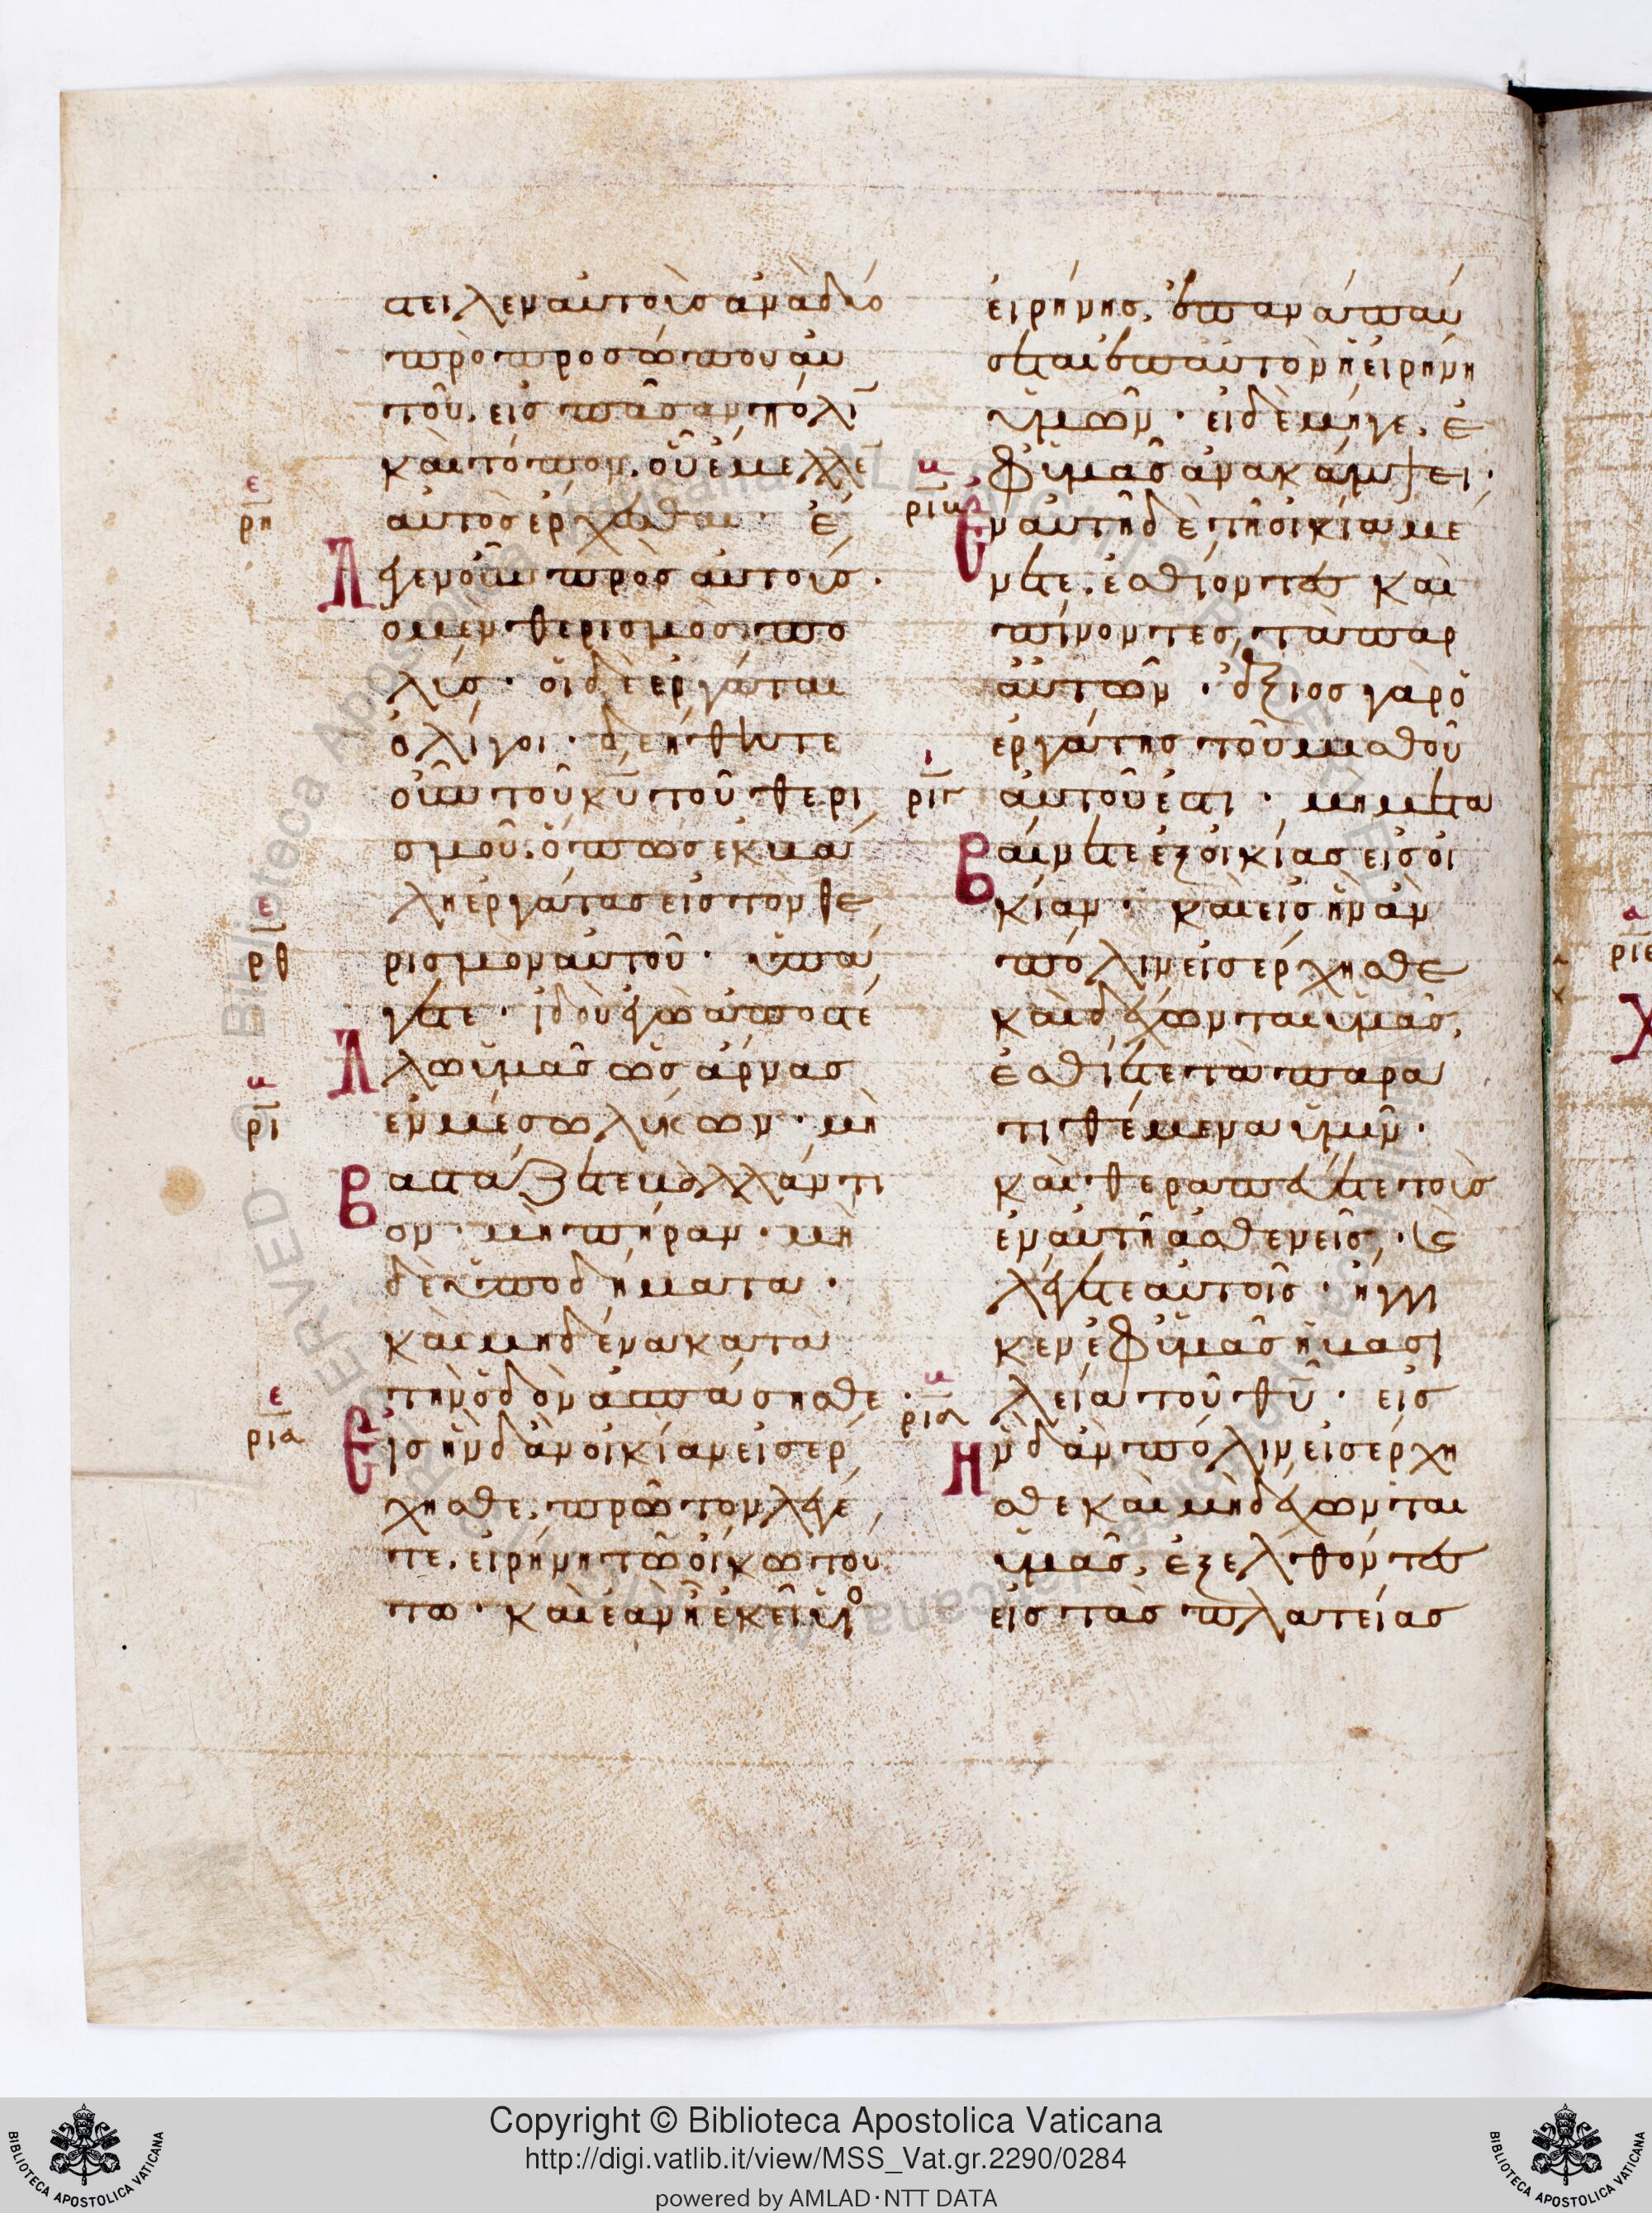 στειλεν αὐτοὺς ἀνὰ δύο
πρὸ προσώπου αὐ
τοῦ. εἰς πᾶσαν πόλῑ
καὶ τόπον. οὗ ἔμελλε
ε
ρη
αὐτὸς ἔρχεσθαι· ἔ
λεγεν οὖν πρὸς αὐτούς·
ὁ μὲν θερισμὸς πο
λύς· οἱ δὲ ἐργάται
ὀλίγοι· δεήθητε
οὖν τοῦ κ̅υ̅ τοῦ θερι
σμοῦ. ὅπως ἐκβά
λη ἐργάτας εἰς τὸν θε
ε
ρθ
ρισμὸν αὐτοῦ· ὑπά
γετε· ἰδοὺ ἐγὼ ἀποστέ
λλω ὑμᾶς ὡς ἄρνας
β
ρι
ἐν μέσω λύκων· μὴ
βαστάζετε βαλλάντι
ον· μὴ πήραν· μὴ
δὲ ὑποδήματα·
καὶ μηδένα κατὰ
τὴν ὁδὸν ἀσπάσησθε·
ε
ρια
εἰς ἣν δ' ἂν οἰκίαν εἰσέρ
χησθε, πρῶτον λέγε
τε. εἰρήνη τῶ οἴκω του
τω· καὶ ἐὰν ἦ ἐκεῖ υἱὸ
εἰρήνης, ἐπαναπαύ
σεται ἐπ' αὐτὸν ἡ εἰρήνη
ὑμῶν· εἰ δὲ μήγε. ἐ
φ' ὑμᾶς ἀνακάμψει·
β
ριβ
ἐν αὐτῆ δὲ τῆ οἰκία μέ
νετε. ἐσθίοντες καὶ
πίνοντες, τὰ παρ
αὐτῶν· ἄξιος γὰρ ὁ
ἐργάτης τοῦ μισθοῦ
ι
ριγ
αὐτοῦ ἐστι· μὴ μετα
βαίνετε ἐξ οἰκίας εἰς οἰ
κίαν· καὶ εἰς ἣν ἂν
πόλιν εἰσέρχησθε
καὶ δέχωνται ὑμᾶς,
ἐσθίετε τὰ παρα
τιθέμενα ὑμῖν·
καὶ θεραπεύετε τοὺς
ἐν αὐτῆ ἀσθενεῖς, · καὶ
λέγετε αὐτοῖς· ἤγγι
κεν ἐφ' ὑμᾶς ἡ βασι
β
ριδ
λεία τοῦ θ̅υ̅· εἰς
ἣν δ' ἂν πόλιν εἰσέρχη
σθε καὶ μὴ δέχωνται
ὑμᾶς, ἐξελθόντες
εἰς τὰς πλατείας
α
ριε
Copyright © Biblioteca Apostolica Vaticana
http://digi.vatlib.it/view/MSS_Vat.gr.2290/0284
powered by AMLAD·NTT DATA
BIBLIOTECA APOSTOLICA VATICANA
BIBLIOTECA APOSTOLICA VATICANA